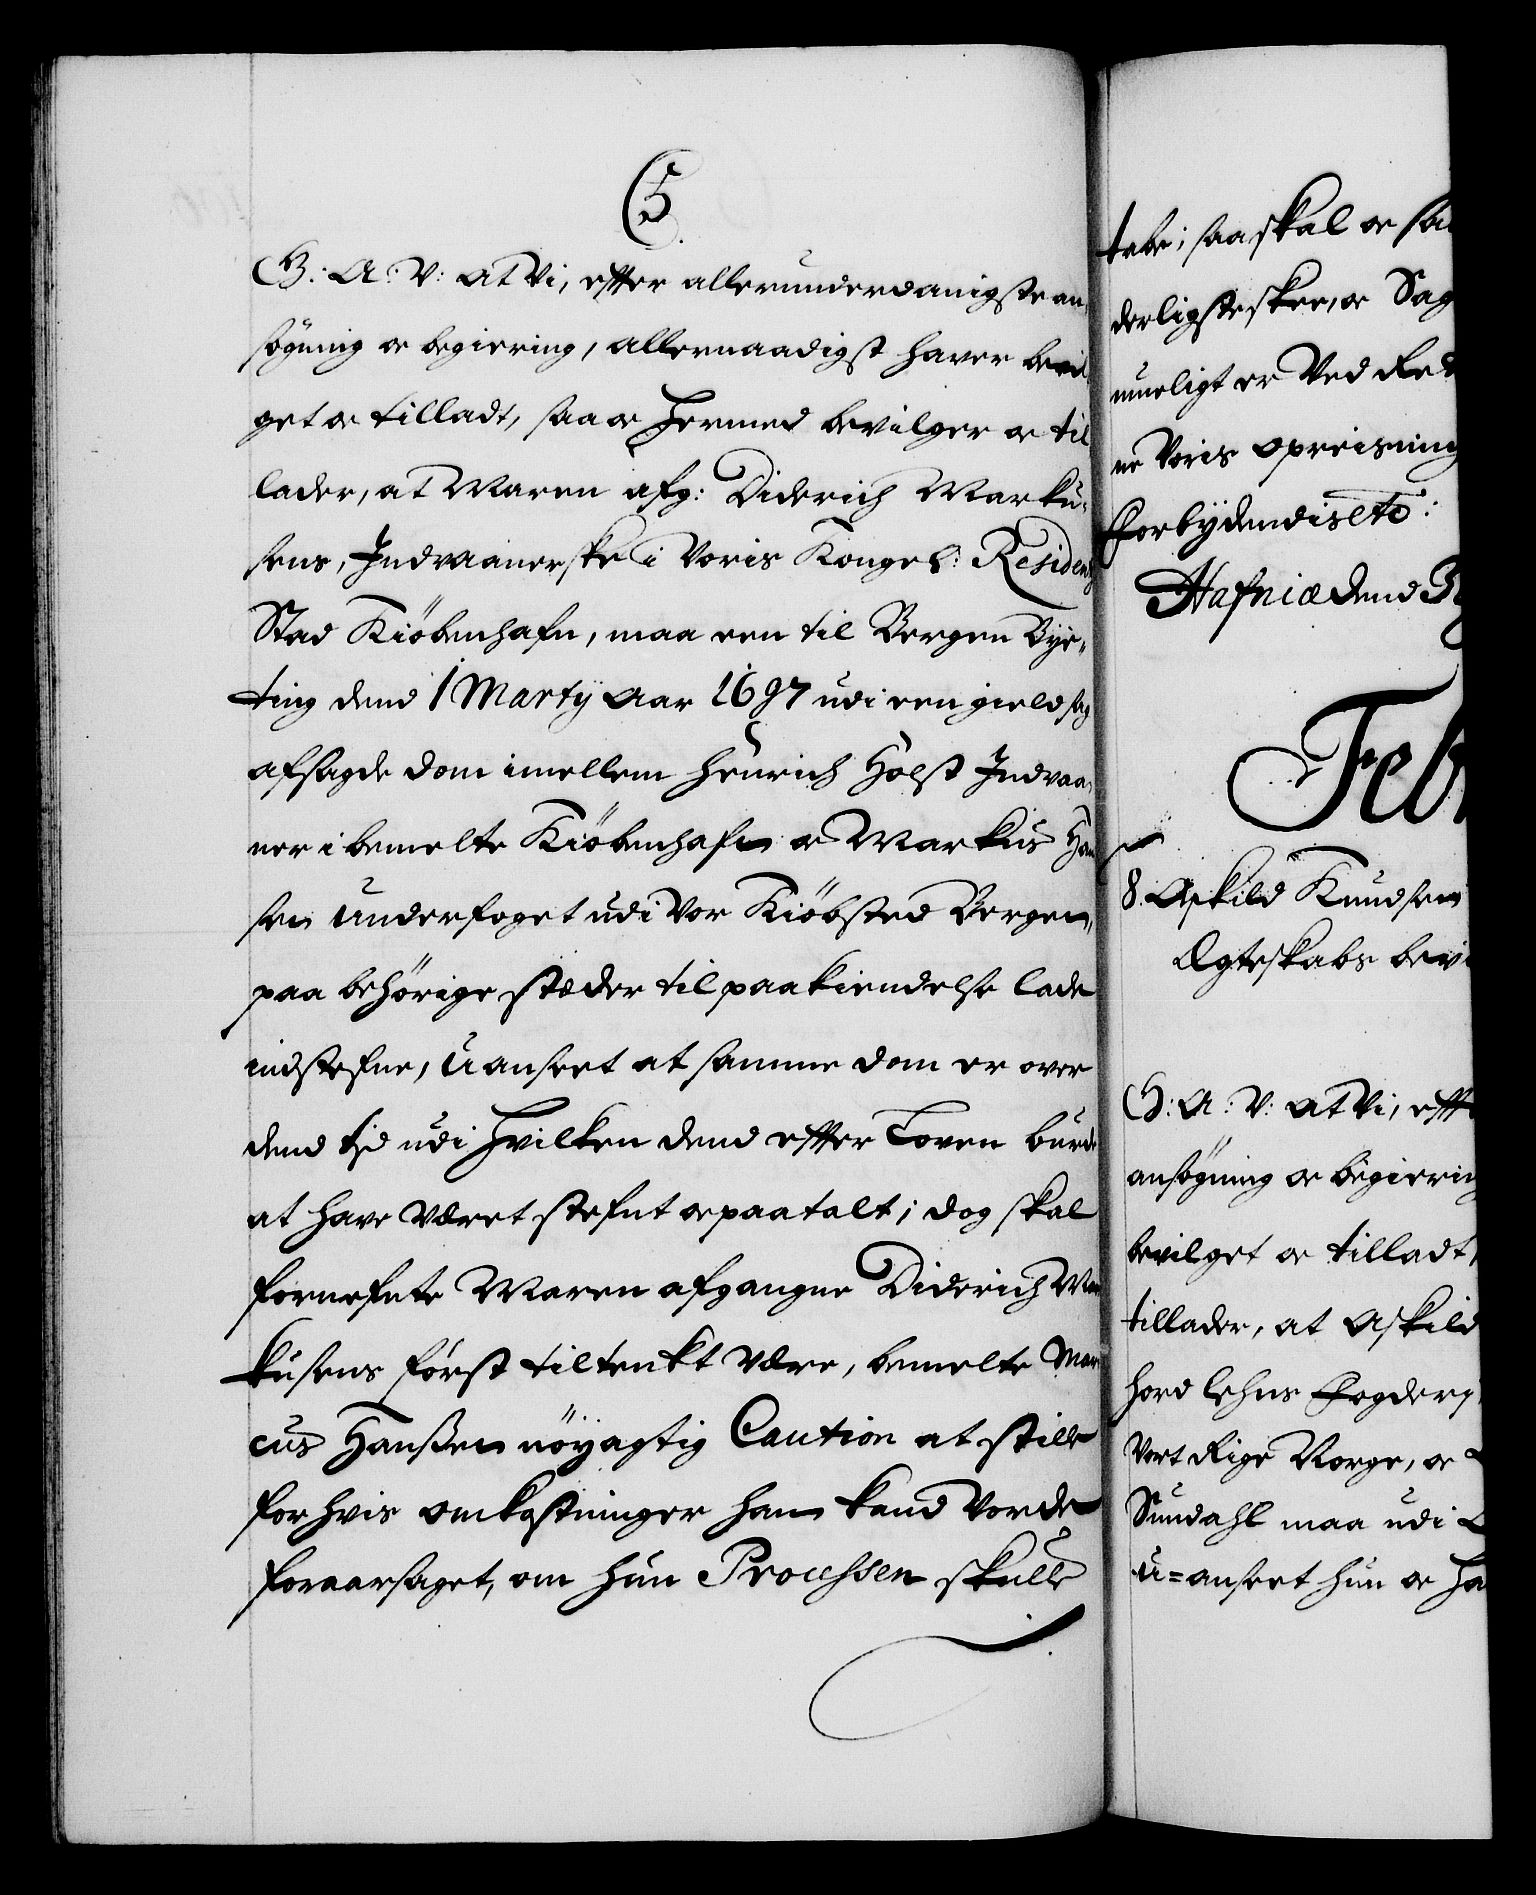 C5.
G: A: V: at Vi, effter allerunderdanigste an,
søgning oc begiering, allernaadigst haver bevil
get oc tilladt, saa oc hermed bevilger oc til
lader, at Maren afg: Diderich Marku,
sens, Indvaanerske i Voris Kongel: Residentz
Stad Kiöbenhafn, maa een til Bergen Bye,,
ting dend 1 Martÿ Aar 1697 udi een gield sag
afsagde dom imellem Henrich Holst Indvaa,
ner i bemelte Kiöbenhafn oc Markus Han
sen Underfoget udi Vor Kiöbsted Bergen,
paa behörige stæder til paakiendelse lade
indstefne, Uanseet at samme dom er over
dend tid udi hvilken dend effter Loven burde
at have Været stefnt oc paatalt; dog skal
fornefnte Maren afgangne Diderich Mar
kusens först tiltenkt Være, bemelte Mar
cus Hanßen nöÿagtig Caution at stille
for hvis omkostninger han kand Vorde
foraarsaget, om hun Processen skulle
tabe; saa skal oc saa
derligste skee, oc Sag
mueligt er Ved Ret
ne Voris opreisning
Forbÿdendis etc:
Hafniæ dend
Feb
8. Askild Knudsen
Ægteskabs bevi
G: A: V: at Vi, efft
ansögning oc begiering
bevilget oc tilladt,
tillader, at Askild
hord lehns Fogderj
Vort Rige Norge, oc
Sundahl maa udi
u=anseet hun oc ha